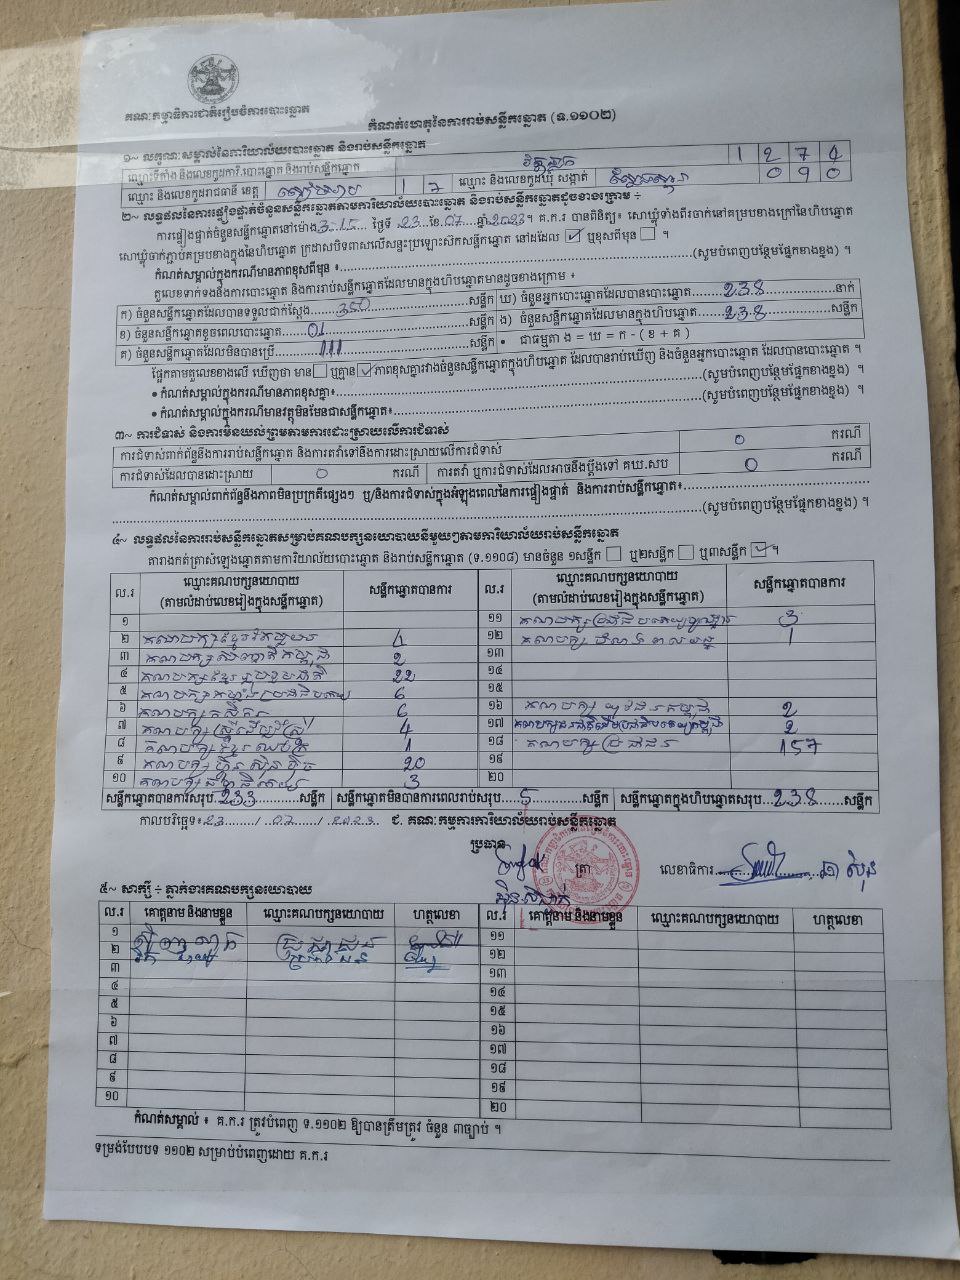 គណៈកម្មាធិការជាតិរៀបចំការបោះឆ្នោត
កំណត់ហេតុនៃការរាប់សន្លឹកឆ្នោត (ទ.១១០២)
១~ លក្ខណៈសម្គាល់នៃការិយាល័យបោះឆ្នោត និងរាប់សន្លឹកឆ្នោត
ឈ្មោះទីតាំង និងលេខកូដការិ.បោះឆ្នោត និងរាប់សន្លឹកឆ្នោត 1 2 7 4
ឈ្មោះ និងលេខកូដរាជធានី ខេត្ត សៀមរាប 1 7 ឈ្មោះ និងលេខកូដឃុំ សង្កាត់ 0 9 0
២~ លទ្ធផលនៃការផ្ទៀងផ្ទាត់ចំនួនសន្លឹកឆ្នោតតាមការិយាល័យបោះឆ្នោត និងរាប់សន្លឹកឆ្នោតដូចខាងក្រោម ÷
ការផ្ទៀងផ្ទាត់ចំនួនសន្លឹកឆ្នោតនៅម៉ោង 3:15 ថ្ងៃទី 23 ខែ 07 ឆ្នាំ 2023 ។ គ.ក.រ បានពិនិត្យ៖ សោឃ្មុំទាំងពីរចាក់នៅគម្របខាងក្រៅនៃហិបឆ្នោត
សោឃ្មុំចាក់ភ្ជាប់គម្របខាងក្នុងនៃហិបឆ្នោត ក្រដាសបិទពាសលើសន្ទះប្រឡោះស៊កសន្លឹកឆ្នោត នៅដដែល ☑ ឬខុសពីមុន ☐ ។
កំណត់សម្គាល់ក្នុងករណីមានភាពខុសពីមុន ៖ (សូមបំពេញបន្ថែមផ្នែកខាងខ្នង) ។
តួលេខទាក់ទងនឹងការបោះឆ្នោត និងការរាប់សន្លឹកឆ្នោតដែលមានក្នុងហិបឆ្នោតមានដូចខាងក្រោម ៖
ក) ចំនួនសន្លឹកឆ្នោតដែលបានទទួលជាក់ស្តែង 350 សន្លឹក ឃ) ចំនួនអ្នកបោះឆ្នោតដែលបានបោះឆ្នោត 238 នាក់
ខ) ចំនួនសន្លឹកឆ្នោតខូចពេលបោះឆ្នោត 01 សន្លឹក ង) ចំនួនសន្លឹកឆ្នោតដែលមានក្នុងហិបឆ្នោត 238 សន្លឹក
គ) ចំនួនសន្លឹកឆ្នោតដែលមិនបានប្រើ 111 សន្លឹក • ជាធម្មតា ង = ឃ = ក - ( ខ + គ )
ផ្អែកតាមតួលេខខាងលើ ឃើញថា មាន ☐ ឬគ្មាន ☑ ភាពខុសគ្នារវាងចំនួនសន្លឹកឆ្នោតក្នុងហិបឆ្នោត ដែលបានរាប់ឃើញ និងចំនួនអ្នកបោះឆ្នោត ដែលបានបោះឆ្នោត ។
• កំណត់សម្គាល់ក្នុងករណីមានភាពខុសគ្នា៖ (សូមបំពេញបន្ថែមផ្នែកខាងខ្នង) ។
• កំណត់សម្គាល់ក្នុងករណីមានវត្ថុមិនមែនជាសន្លឹកឆ្នោត៖ (សូមបំពេញបន្ថែមផ្នែកខាងខ្នង) ។
៣~ ការជំទាស់ និងការមិនយល់ព្រមតាមការដោះស្រាយលើការជំទាស់
ការជំទាស់ពាក់ព័ន្ធនឹងការរាប់សន្លឹកឆ្នោត និងការតវ៉ាទៅនឹងការដោះស្រាយលើការជំទាស់ 0 ករណី
ការជំទាស់ដែលបានដោះស្រាយ 0 ករណី ការតវ៉ា ឬការជំទាស់ដែលអាចនឹងប្តឹងទៅ គឃ.សប 0 ករណី
កំណត់សម្គាល់ពាក់ព័ន្ធនឹងភាពមិនប្រក្រតីផ្សេងៗ ឬ/និងការជំទាស់ក្នុងអំឡុងពេលនៃការផ្ទៀងផ្ទាត់ និងការរាប់សន្លឹកឆ្នោត៖
(សូមបំពេញបន្ថែមផ្នែកខាងខ្នង) ។
៤~ លទ្ធផលនៃការរាប់សន្លឹកឆ្នោតសម្រាប់គណបក្សនយោបាយនីមួយៗតាមការិយាល័យរាប់សន្លឹកឆ្នោត
តារាងកត់ត្រាសំឡេងឆ្នោតតាមការិយាល័យបោះឆ្នោត និងរាប់សន្លឹកឆ្នោត (ទ.១១០៨) មានចំនួន ១សន្លឹក ☐ ឬ២សន្លឹក ☐ ឬ៣សន្លឹក ☑ ។
ល.រ ឈ្មោះគណបក្សនយោបាយ (តាមលំដាប់លេខរៀងក្នុងសន្លឹកឆ្នោត) សន្លឹកឆ្នោតបានការ ល.រ ឈ្មោះគណបក្សនយោបាយ (តាមលំដាប់លេខរៀងក្នុងសន្លឹកឆ្នោត) សន្លឹកឆ្នោតបានការ
១ ១១ 3
២ 4 ១២ 1
៣ 2 ១៣
៤ គណបក្សខ្មែររួបរួមជាតិ 22 ១៤
៥ គណបក្សកម្លាំងប្រជាធិបតេយ្យ 6 ១៥
៦ គណបក្សកសិករ 6 ១៦ គណបក្សយុវជនកម្ពុជា 2
៧ គណបក្សស្ត្រីដើម្បីស្ត្រី 4 ១៧ 2
៨ គណបក្សខ្មែរឈប់ក្រ 1 ១៨ គណបក្សប្រជាជន 157
៩ គណបក្សហ្វ៊ុនស៊ិនប៉ិច 20 ១៩
១០ គណបក្សធម្មាធិបតេយ្យ 3 ២០
សន្លឹកឆ្នោតបានការសរុប 233 សន្លឹក សន្លឹកឆ្នោតមិនបានការពេលរាប់សរុប 5 សន្លឹក សន្លឹកឆ្នោតក្នុងហិបឆ្នោតសរុប 238 សន្លឹក
កាលបរិច្ឆេទ៖ 23 / 07 / 2023 ជ. គណៈកម្មការការិយាល័យរាប់សន្លឹកឆ្នោត
ប្រធាន
ត្រា លេខាធិការ
៥~ សាក្សី ÷ ភ្នាក់ងារគណបក្សនយោបាយ
ល.រ គោត្តនាម និងនាមខ្លួន ឈ្មោះគណបក្សនយោបាយ ហត្ថលេខា ល.រ គោត្តនាម និងនាមខ្លួន ឈ្មោះគណបក្សនយោបាយ ហត្ថលេខា
១ ប្រជាជន ១១
២ ១២
៣ ១៣
៤ ១៤
៥ ១៥
៦ ១៦
៧ ១៧
៨ ១៨
៩ ១៩
១០ ២០
កំណត់សម្គាល់ ៖ គ.ក.រ ត្រូវបំពេញ ទ.១១០២ ឱ្យបានត្រឹមត្រូវ ចំនួន ៣ច្បាប់ ។
ទម្រង់បែបបទ ១១០២ សម្រាប់បំពេញដោយ គ.ក.រ